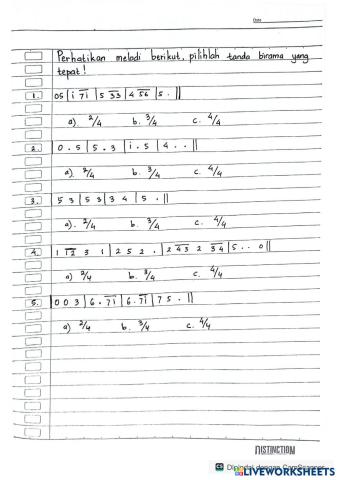 Date
Perhatikan melodi berikut, pilihlah tanda birama yang
tepat!
1. 05 | i 7̅i̅ | 5 3̅3̅ | 4 5̅6̅ | 5 . ||
a). 2/4 b. 3/4 c. 4/4
2. | 0 . 5 | 5 . 3 | i . 5 | 4 . . ||
a). 2/4 b. 3/4 c. 4/4
3. 5 3 | 5 3 | 3 4 | 5 . ||
a). 2/4 b. 3/4 c. 4/4
4. 1 1̅2̅ 3 1 | 2 5 2 . | 2 4̅3̅ 2 3̅4̅ | 5 . . 0 ||
a) 2/4 b. 3/4 c. 4/4
5. | 0 0 3 | 6 . 7̅i̅ | 6 . 7̅i̅ | 7 5 . ||
a) 2/4 b. 3/4 c. 4/4
DISTINCTION
CS Dipindai dengan CamScanner
LIVEWORKSHEETS